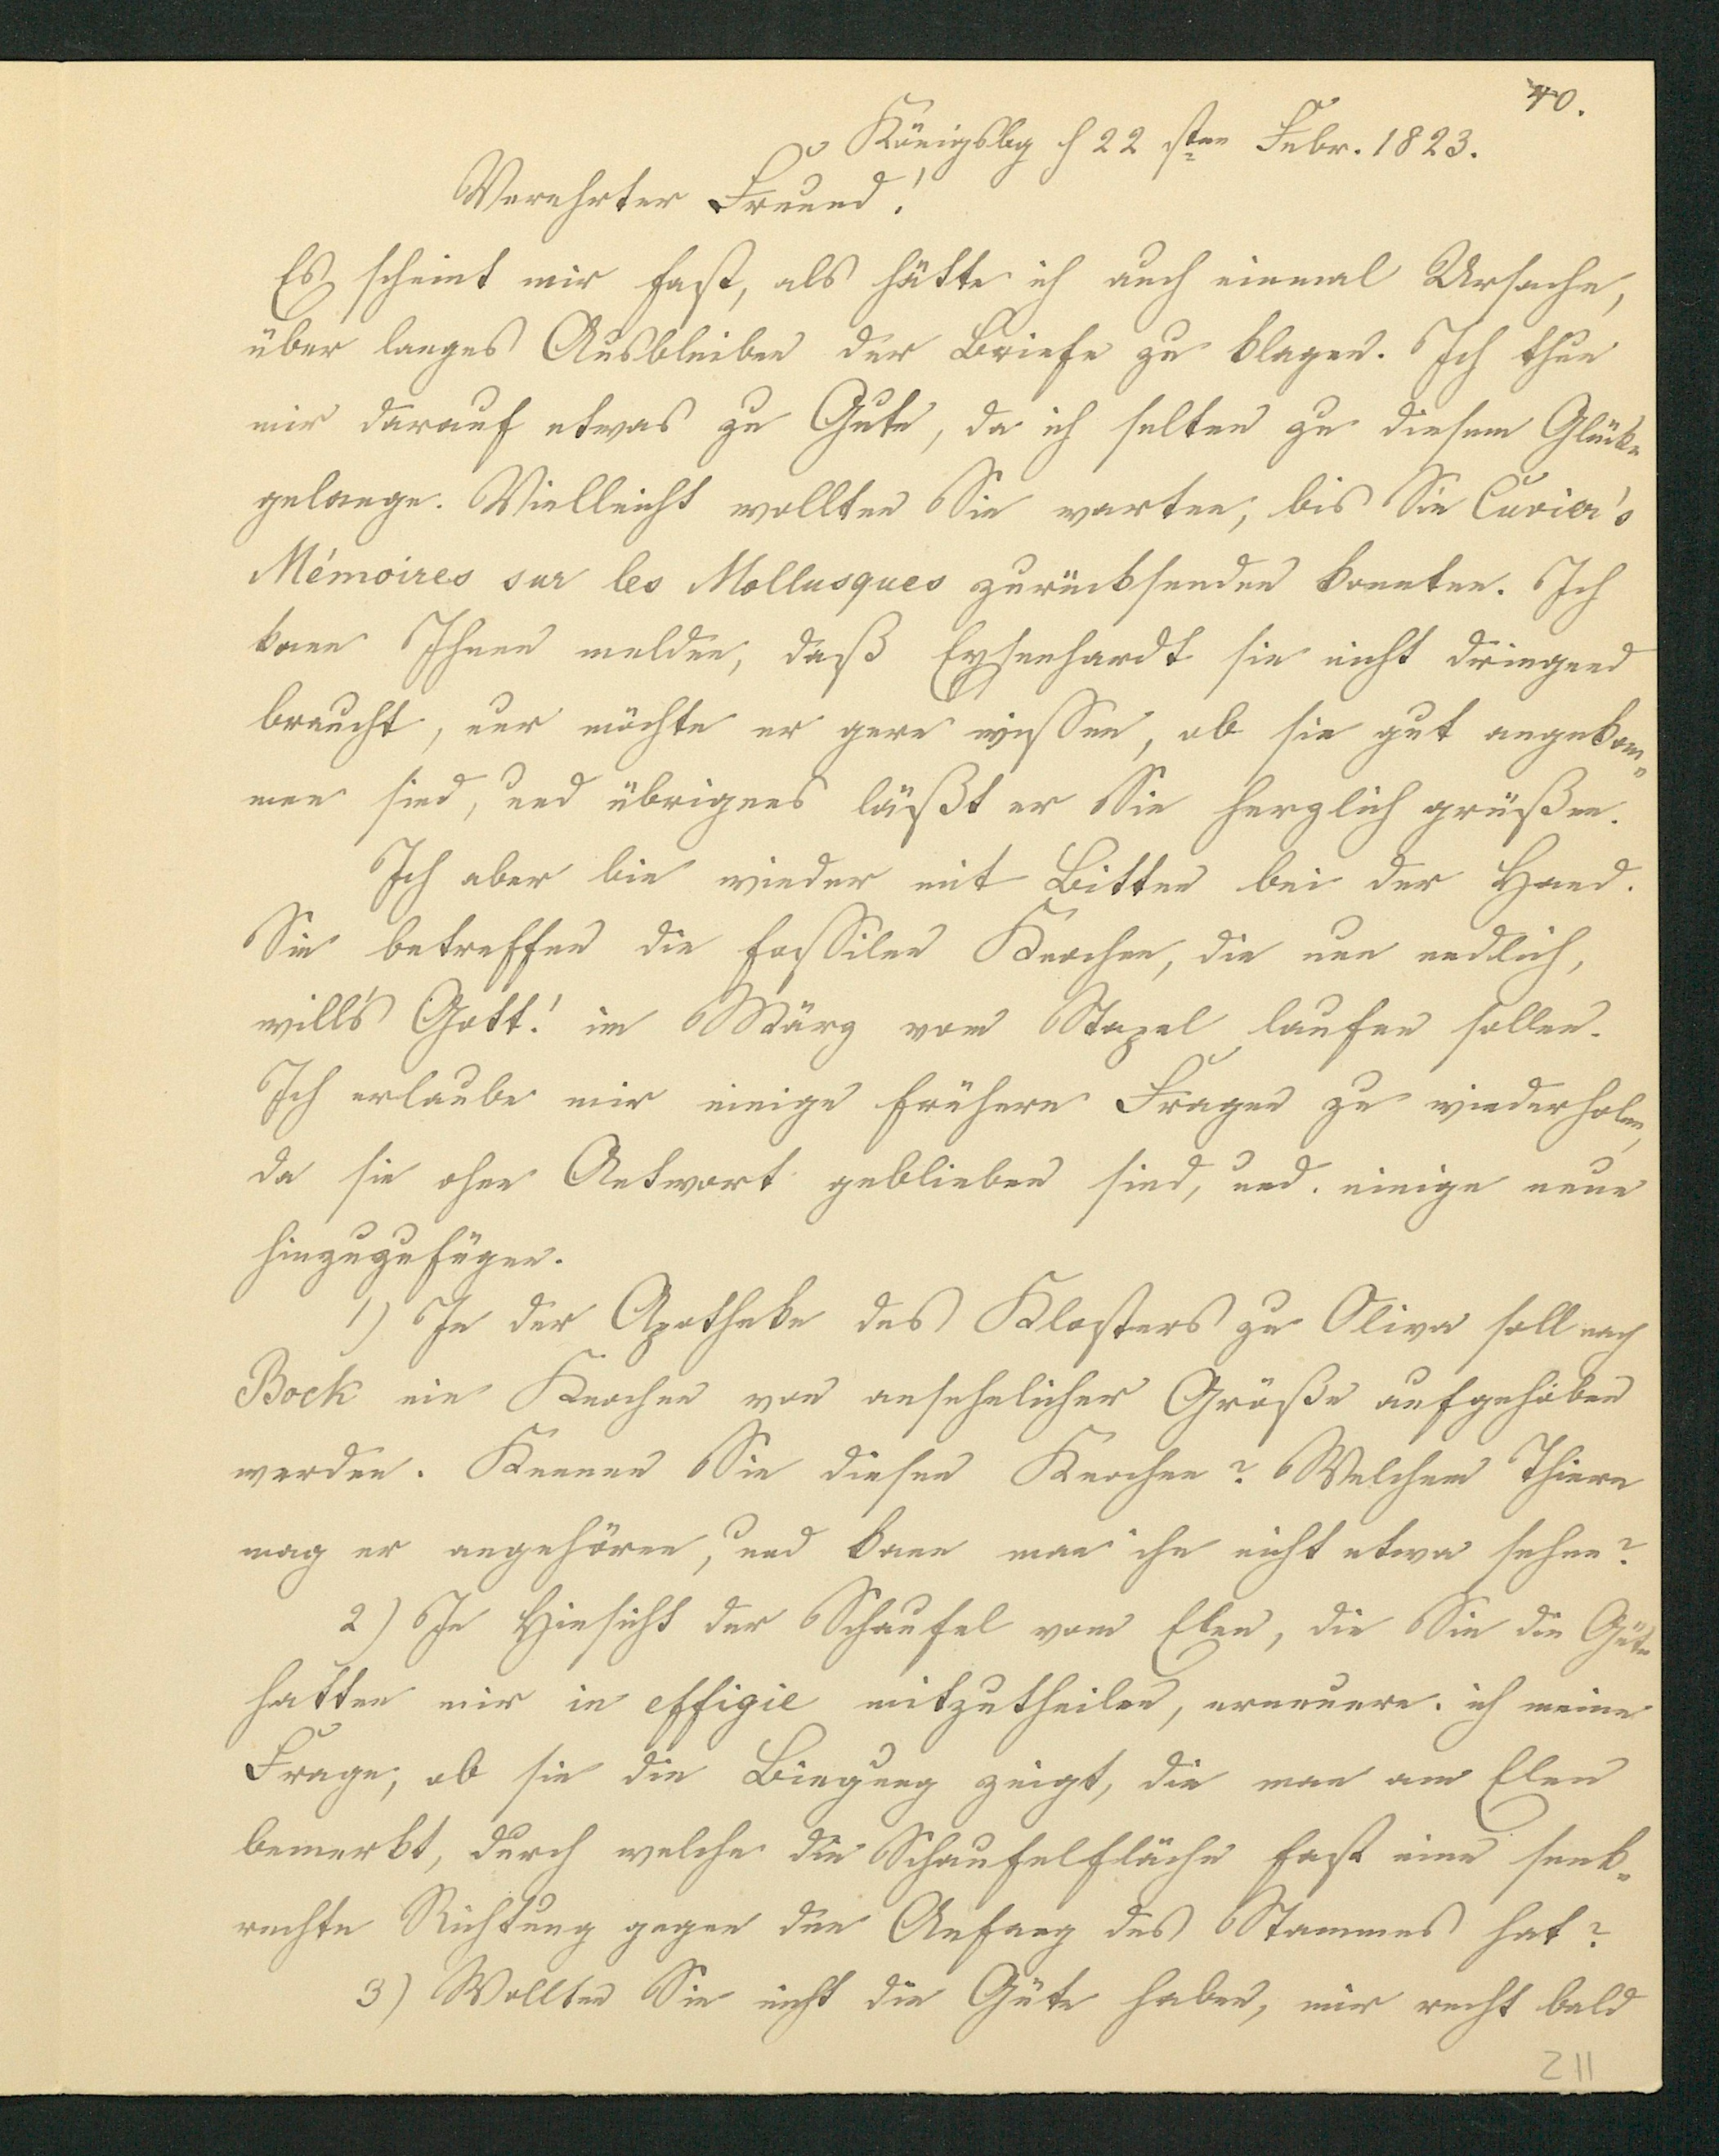 40.
Königsbg d 22 sten Febr. 1823.
Verehrter Freund!
Es scheint mir fast, als hätte ich auch einmal Ursache,
über langes Ausbleiben der Briefe zu klagen. Ich thue
mir darauf etwas zu Gute, da ich selten zu diesem Glücke
gelange. Vielleicht wollten Sie warten, bis Sie Cuvier's
Mémoires sur les Mollusques zurücksenden konnten. Ich
kann Ihnen melden, daß Eysenhardt sie nicht dringend
braucht, nur möchte er gern wissen, ob sie gut angekom-
men sind, und übrigens läßt er Sie herzlich grüßen.
Ich aber bin wieder mit Bitten bei der Hand.
Sie betreffen die fossilen Knochen, die nun endlich,
will's Gott! im März vom Stapel laufen sollen.
Ich erlaube mir einige frühere Fragen zu wiederholen,
da sie ohne Antwort geblieben sind, und einige neue
hinzuzufügen.
1) In der Apotheke des Klosters zu Oliva soll nach
Bock ein Knochen von ansehnlicher Größe aufgehoben
werden. Kennen Sie diesen Knochen? Welchem Thiere
mag er angehören, und kann man ihn nicht etwa sehen?
2) In Hinsicht der Schaufel vom Elen, die Sie die Güte
hatten mir in effigie mitzutheilen, erneuere ich meine
Frage, ob sie die Biegung zeigt, die man am Elen
bemerkt, durch welche die Schaufelfläche fast eine senk-
rechte Richtung gegen den Anfang des Stammes hat?
3) Wollten Sie nicht die Güte haben, mir recht bald
211